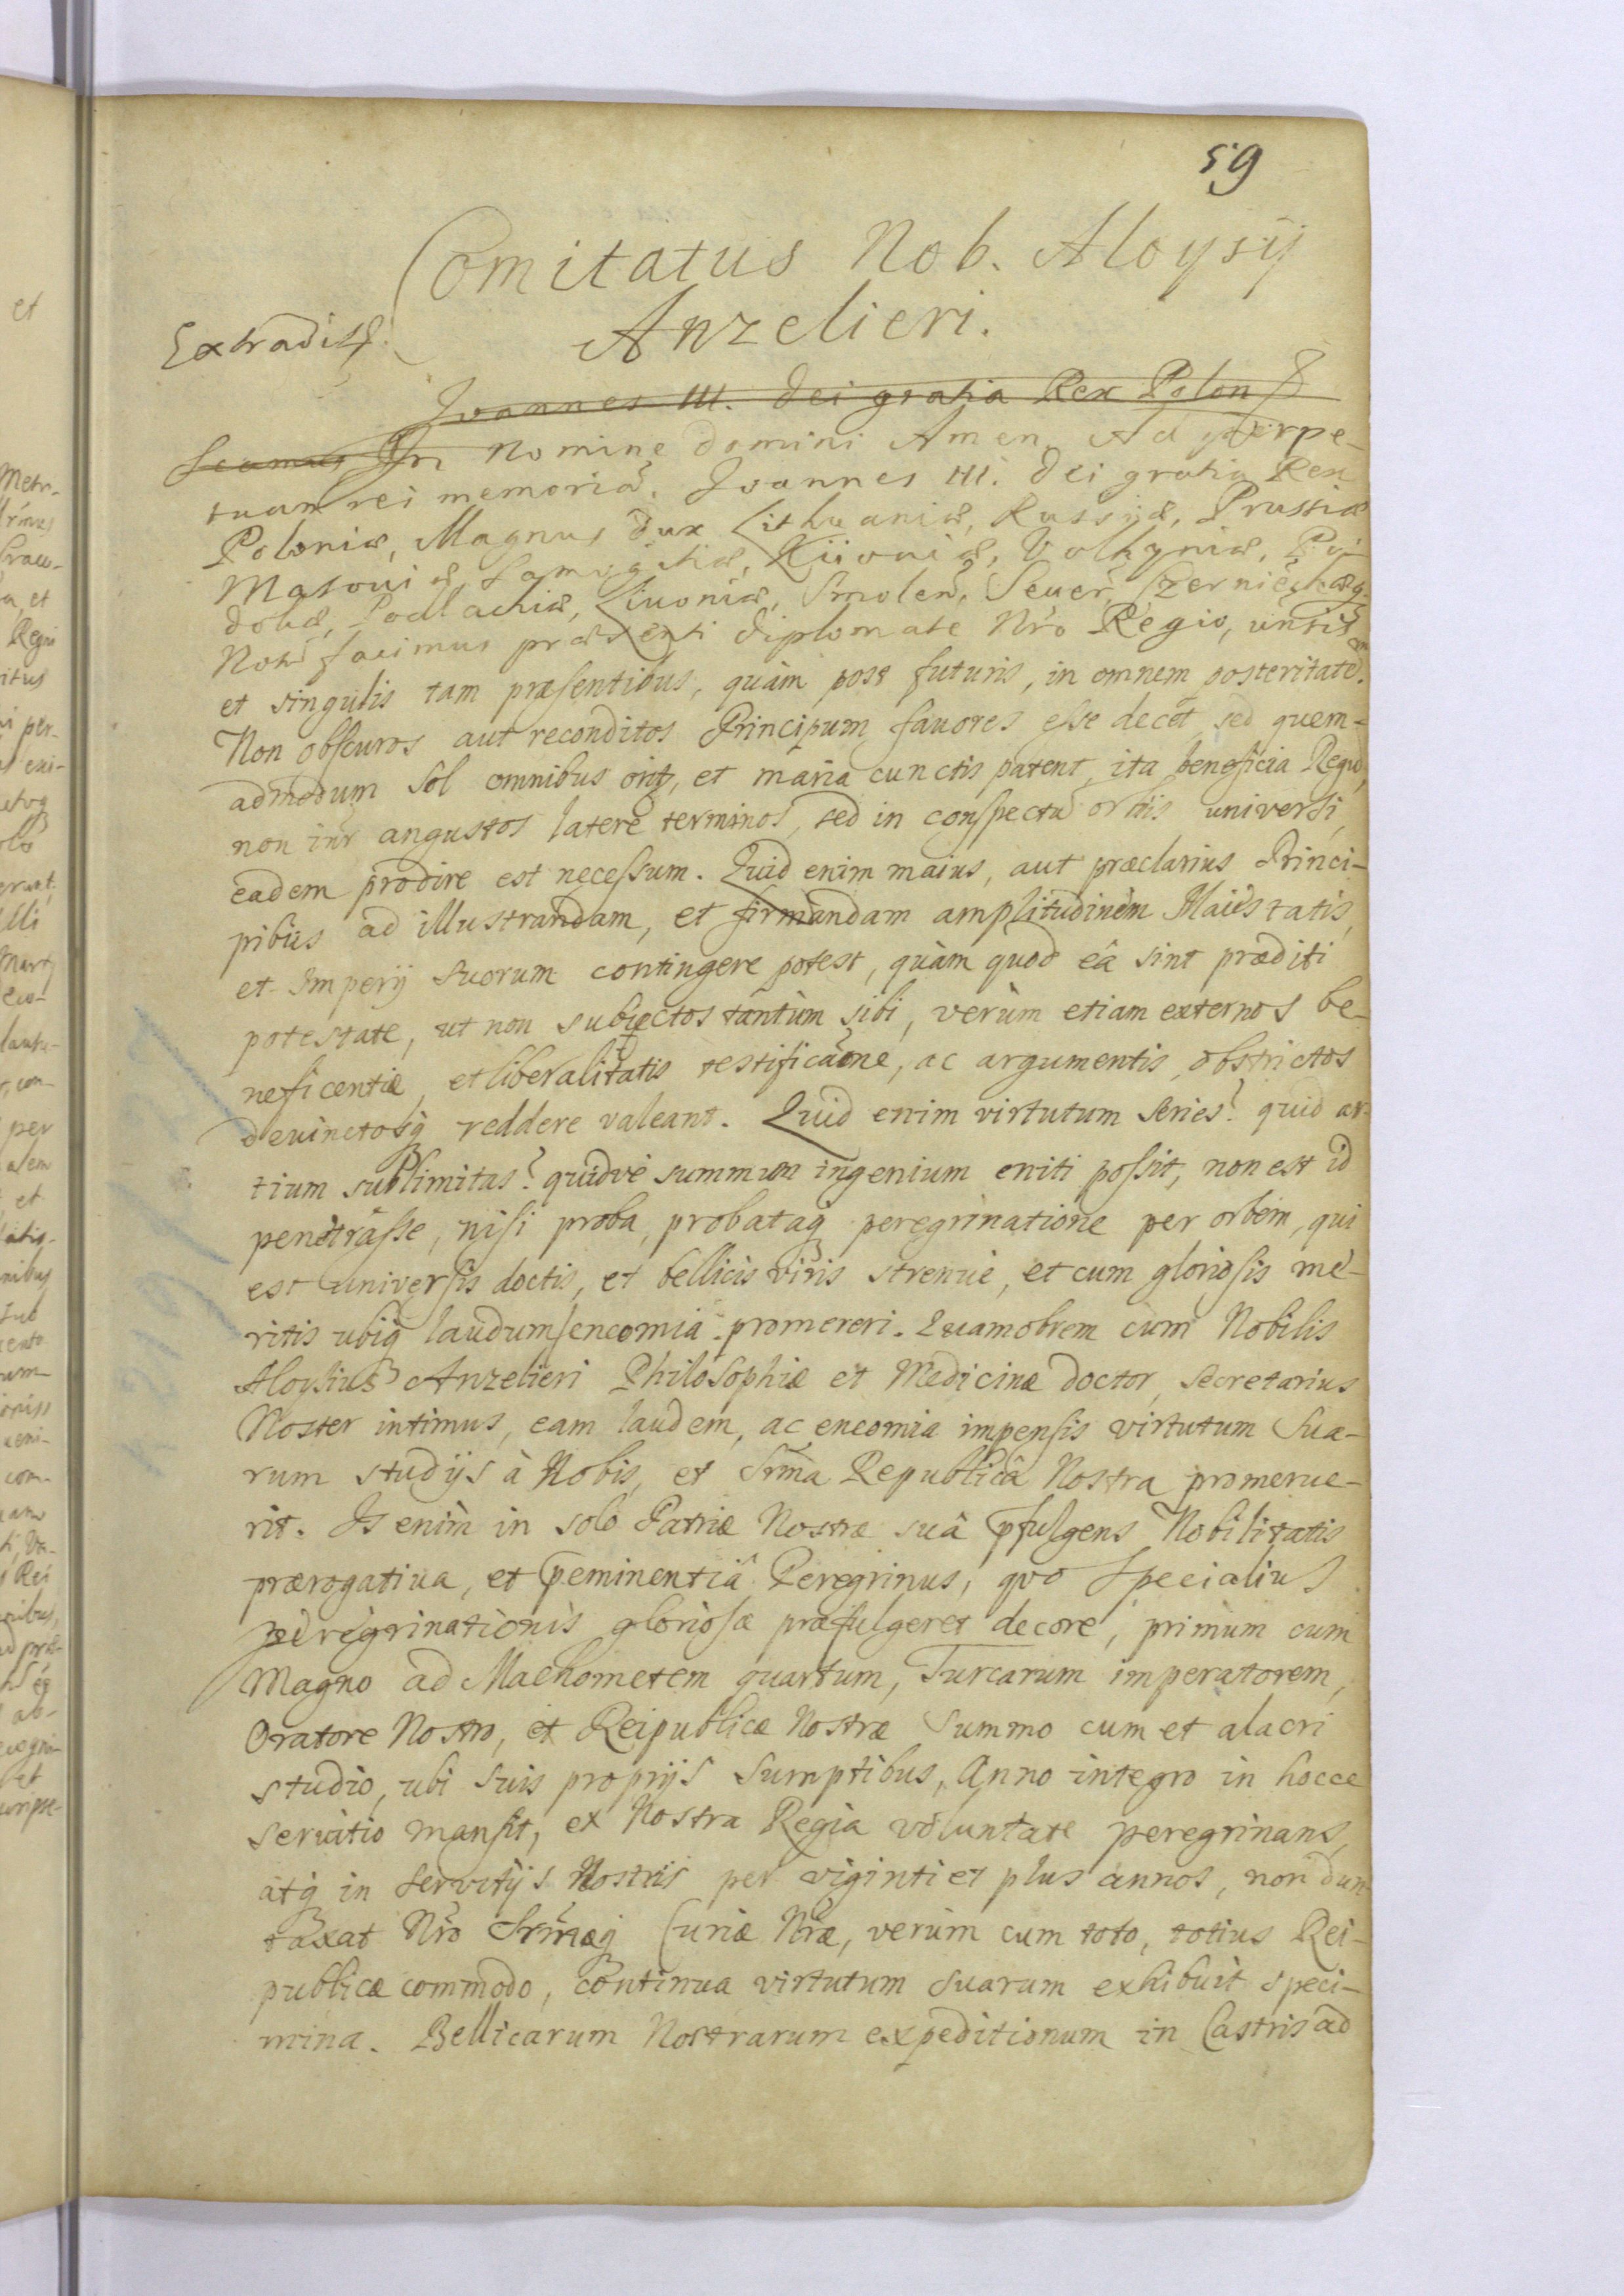 59
Comitatus Nob. Aloysij
Anzelieri.
Extradit
Joannes III. Dei gratia Rex Polon
In Nomine Domini Amen. Ad perpe-
tuam rei memoriã. Joannes III. Dei gratia Rex
Poloniæ, Magnus Dux Lithuaniæ, Russiæ, Prussiæ
Masouiæ, Samogitiæ, Kiiouiæ, Volhyniæ, Po-
doliæ, Podlachiæ, Liuoniæ, Smolen, Seuer, Czerniechæq
Notũ facimus præsenti Diplomate Nro Regio,
et singulis tam præsentibus, quàm post futuris, in omnem posteritatẽ.
Non obscuros aut reconditos Principum fauores esse decet, sed quem-
admodum Sol omnibus orit, et maria cunctis patent, ita beneficia Regũ,
non intr angustos latere terminos, sed in conspectu orbis universi,
eadem prodire est necessum. Quid enim maius, aut præclarius Princi-
pibus ad illustrandam, et firmandam amplitudinem Maiestatis,
et Imperij suorum contingere potest, quàm quod eâ sint præditi
potestate, ut non subiectos tantùm sibi, verùm etiam externos be-
neficentiæ, et liberalitatis testificaone, ac argumentis, obstrictos
deuinctosq reddere valeant. Quid enim virtutum series? quid ar-
tium sublimitas? quidvè summum ingenium eniti possit, non est id
penetrâsse, nisi proba, probataq peregrinatione per orbem, qui
est universis doctis, et bellicis viris strenuè, et cum gloriosis me-
ritis ubiq laudum encomia promereri. Quamobrem cùm Nobilis
Aloysius Anzelieri Philosophiæ et Medicinæ Doctor, Secretarius
Noster intimus, eam laudem, ac encomia impensis virtutum sua-
rum studijs à Nobis, et Srma Republicâ Nostra promerue-
rit. Is enim in solo Patriæ Nostræ suâ pfulgens Nobilitatis
prærogatiua, et peminentiâ Peregrinus, quo specialius
peregrinationis gloriosæ præfulgeret decore, primùm cum
Magno ad Machometem quartum, Turcarum imperatorem,
Oratore Nostro, et Reipublicæ Nostræ summo cum et alacri
studio, ubi suis proprijs sumptibus, Anno integro in hocce
seruitio mansit, ex Nostra Regia voluntate peregrinans,
atq in servitijs Nostris per viginti et plus annos, non dun
taxat Nro Srmæq Curiæ Nræ, verùm cum toto, totius Rei-
publicæ commodo, continua virtutum suarum exhibuit speci-
mina. Bellicarum Nostrarum expeditionum in Castris ad